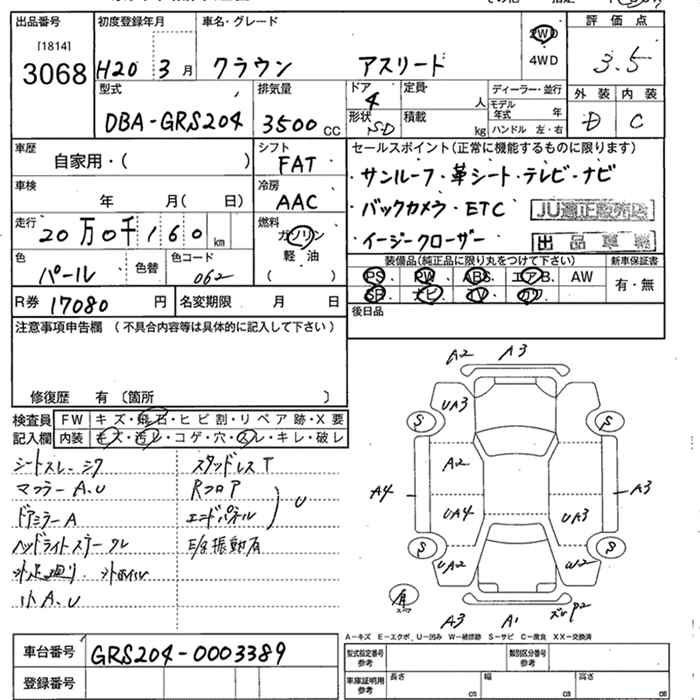 出品番号 初度登録年月 車名・グレード 2WD 評価点
[1814]
3068 H20 3月 クラウン アスリード 4WD 3.5
型式 排気量 ドア 定員 ディーラー・並行 外装 内装
DBA-GRS204 3500CC 4 人 モデル年式 年 D C
形状 積載
SD kg ハンドル 左・右
車歴 シフト セールスポイント(正常に機能するものに限ります)
自家用・( ) FAT ・サンルーフ・革シート・テレビ・ナビ
車検 冷房
年 月( 日) AAC ・バックカメラ・ETC JU適正販売店
走行 燃料
20万0千160km ガソリン ・イージークローザー 出品車輌
色 色替 色コード 軽油 装備品(純正品に限り丸をつけて下さい) 新車保証書
パール 062 ( ) PS PW ABS エアB. AW 有・無
R券 17080円 名変期限 月 日 SR ナビ TV カワ
注意事項申告欄 (不具合内容等は具体的に記入して下さい) 後日品
修復歴 有〔箇所 〕
検査員 FW キズ・飛石・ヒビ割・リペア跡・X要
記入欄 内装 キズ・汚レ・コゲ・穴・スレ・キレ・破レ
シートスレ・シワ スタッドレスT
マフラーA.U Rフロア
ドアミラーA エンドパネル U
ヘッドライトステー クレ E/G振動有
小A.U
A2 A3
UA3
S S
A2
A4 A3
UA4 UA3
S S
UA2 W2
A3 A1
A-キズ E-エクボ U-凹み W-補修跡 S-サビ C-腐食 XX-交換済
車台番号 GRS204-0003389 型式指定番号 参考 類別区分番号 参考
登録番号 車庫証明用 参考 長さ cm 幅 cm 高さ cm